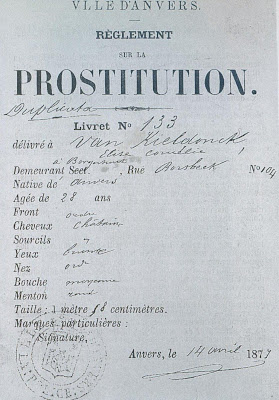 VILLE D'ANVERS.
RÈGLEMENT
SUR LA
PROSTITUTION.
Duplicata
Livret No 133
délivré à Van Kieldonck
Elise
à Borgerhout
Demeurant Sect. , Rue Borsbeek No 104
Native de Anvers
Agée de 28 ans
Front ordre
Cheveux Châtain
Sourcils "
Yeux
Nez ord
Bouche moyenne
Menton rond
Taille: 1 mètre 58 centimètres.
Marques particulières:
Signature,
Anvers, le 14 avril 1877